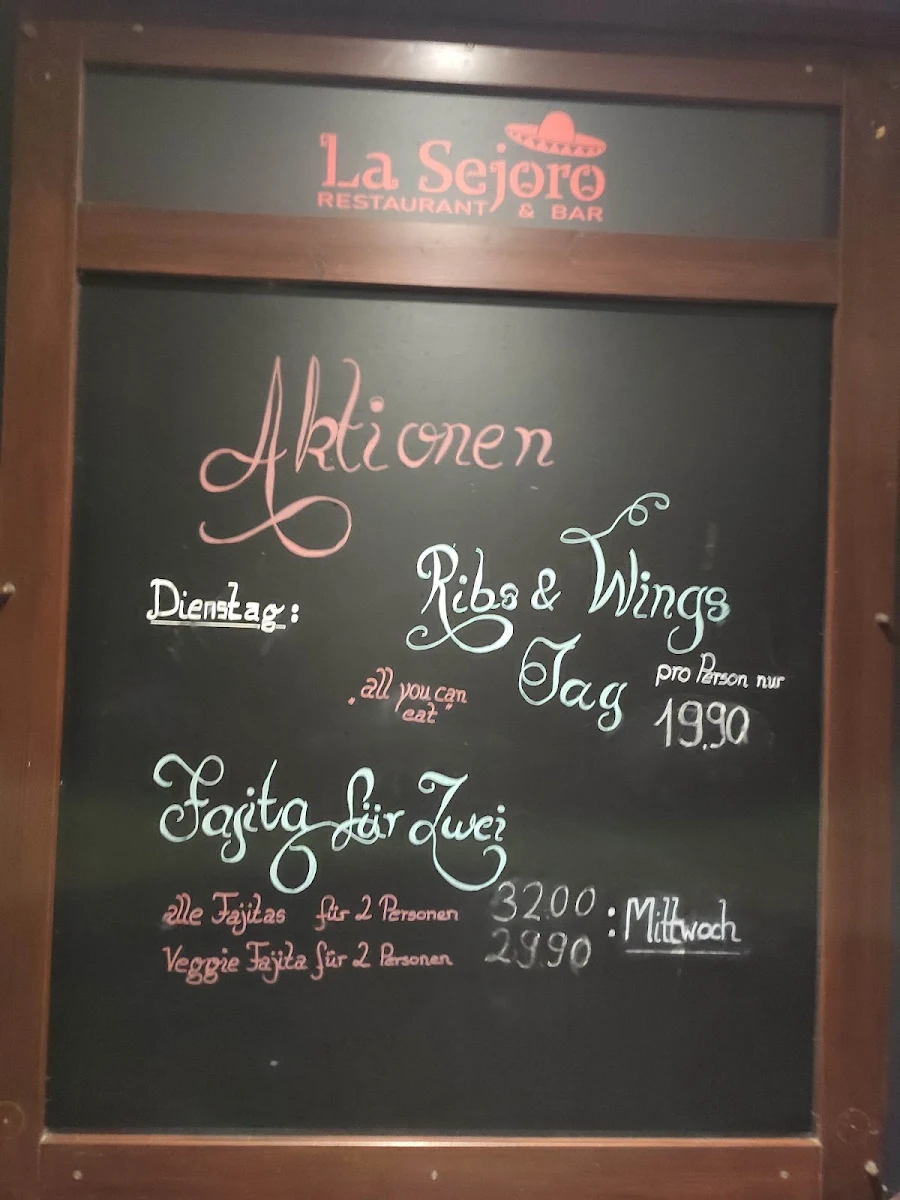 La Sejoro
RESTAURANT & BAR
Aktionen
Dienstag: Ribs & Wings
Tag
"all you can
eat"
pro Person nur
19.90
Fajita für Zwei
alle Fajitas für 2 Personen 32.00 : Mittwoch
Veggie Fajita für 2 Personen 29.90